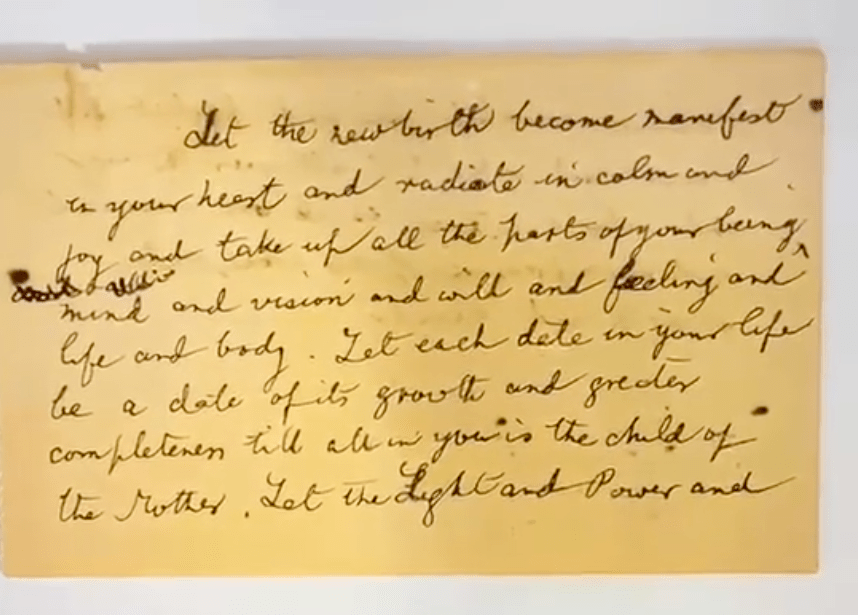 Let the new birth become manifest
in your heart and radiate in calm and
joy and take up all the parts of your being,
mind and vision and will and feeling and
life and body. Let each date in your life
be a date of its growth and greater
completeness till all in you is the child of
the Mother. Let the Light and Power and